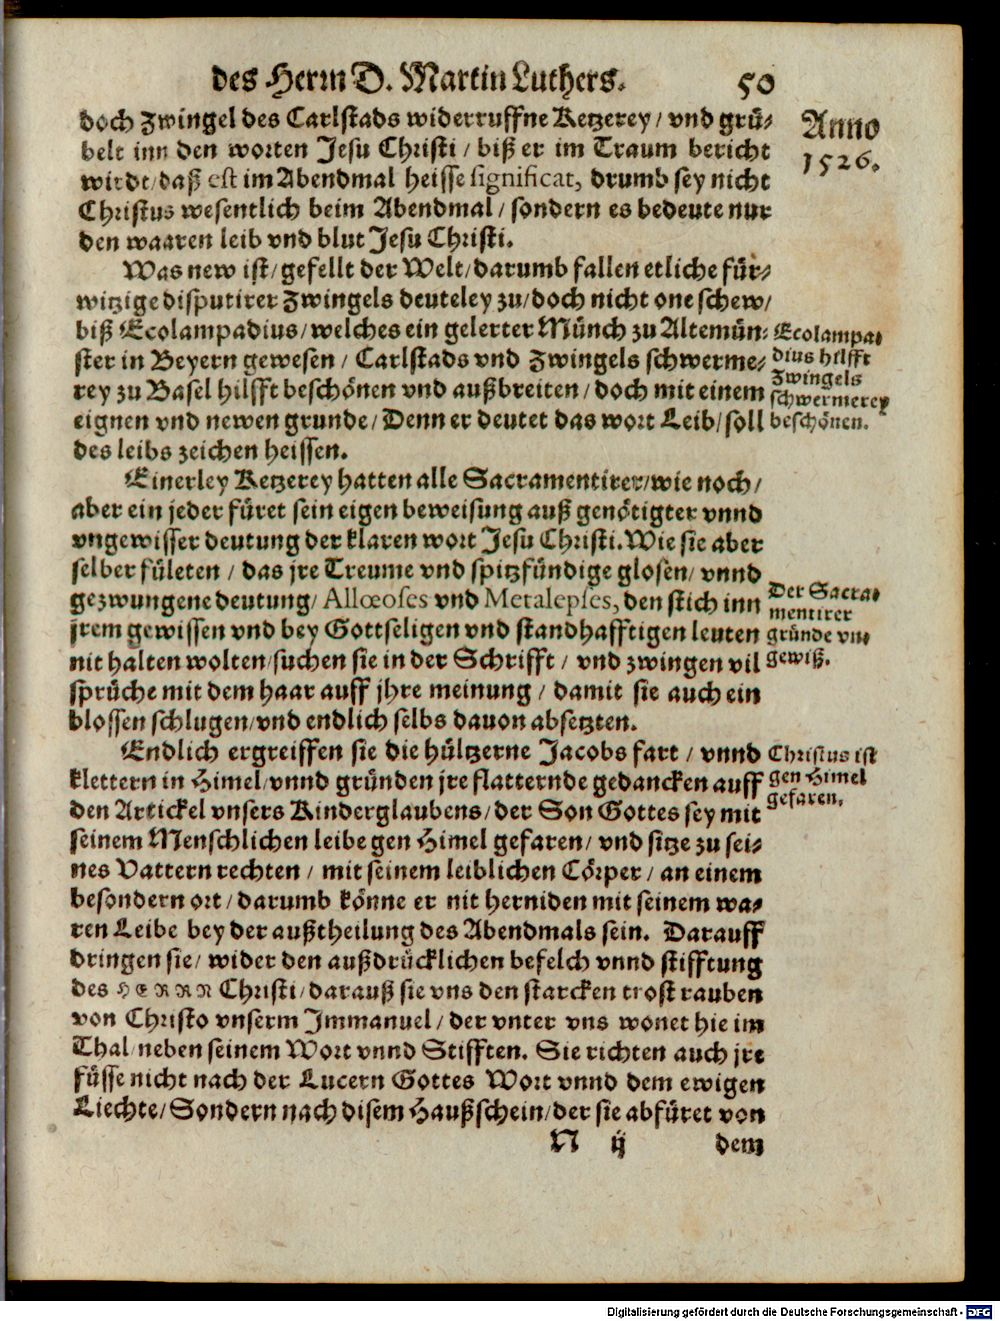 des Herrn D. Martin Luthers. 50
doch Zwingel des Carlstads widerruffne Ketzerey / vnd grü-
belt inn den worten Jesu Christi / biß er im Traum bericht
wirdt / daß est im Abendmal heisse significat, drumb sey nicht
Christus wesentlich beim Abendmal / sondern es bedeute nur
den waaren leib vnd blut Jesu Christi.
Anno
1526.
Was new ist / gefellt der Welt / darumb fallen etliche für-
witzige disputirer Zwingels deuteley zu / doch nicht one schew /
biß Ecolampadius / welches ein gelerter Münch zu Altemün-
ster in Beyern gewesen / Carlstads vnd Zwingels schwerme-
rey zu Basel hilfft beschönen vnd außbreiten / doch mit einem
eignen vnd newen grunde / Denn er deutet das wort Leib / soll
des leibs zeichen heissen.
Ecolampa-
dius hilfft
Zwingels
schwermerey
beschönen.
Einerley Ketzerey hatten alle Sacramentirer / wie noch /
aber ein jeder füret sein eigen beweisung auß genötigter vnnd
vngewisser deutung der klaren wort Jesu Christi. Wie sie aber
selber fületen / das jre Treume vnd spitzfündige glosen / vnnd
gezwungene deutung / Allœoses vnd Metalepses, den stich inn
jrem gewissen vnd bey Gottseligen vnd standhafftigen leuten
nit halten wolten / suchen sie in der Schrifft / vnd zwingen vil
sprüche mit dem haar auff jhre meinung / damit sie auch ein
blossen schlugen / vnd endlich selbs dauon absetzten.
Der Sacra-
mentirer
gründe vn-
gewiß.
Endlich ergreiffen sie die hültzerne Jacobs fart / vnnd
klettern in Himel / vnnd gründen jre flatternde gedancken auff
den Artickel vnsers Kinderglaubens / der Son Gottes sey mit
seinem Menschlichen leibe gen Himel gefaren / vnd sitze zu sei-
nes Vattern rechten / mit seinem leiblichen Cörper / an einem
besondern ort / darumb könne er nit herniden mit seinem wa-
ren Leibe bey der außtheilung des Abendmals sein. Darauff
dringen sie / wider den außdrücklichen befelch vnnd stifftung
des HERRN Christi / darauß sie vns den starcken trost rauben
von Christo vnserm Immanuel / der vnter vns wonet hie im
Thal / neben seinem Wort vnnd Stifften. Sie richten auch jre
füsse nicht nach der Lucern Gottes Wort vnnd dem ewigen
Liechte / Sondern nach disem Haußschein / der sie abfüret von
Christus ist
gen Himel
gefaren.
N ij dem
Digitalisierung gefördert durch die Deutsche Forschungsgemeinschaft - DFG